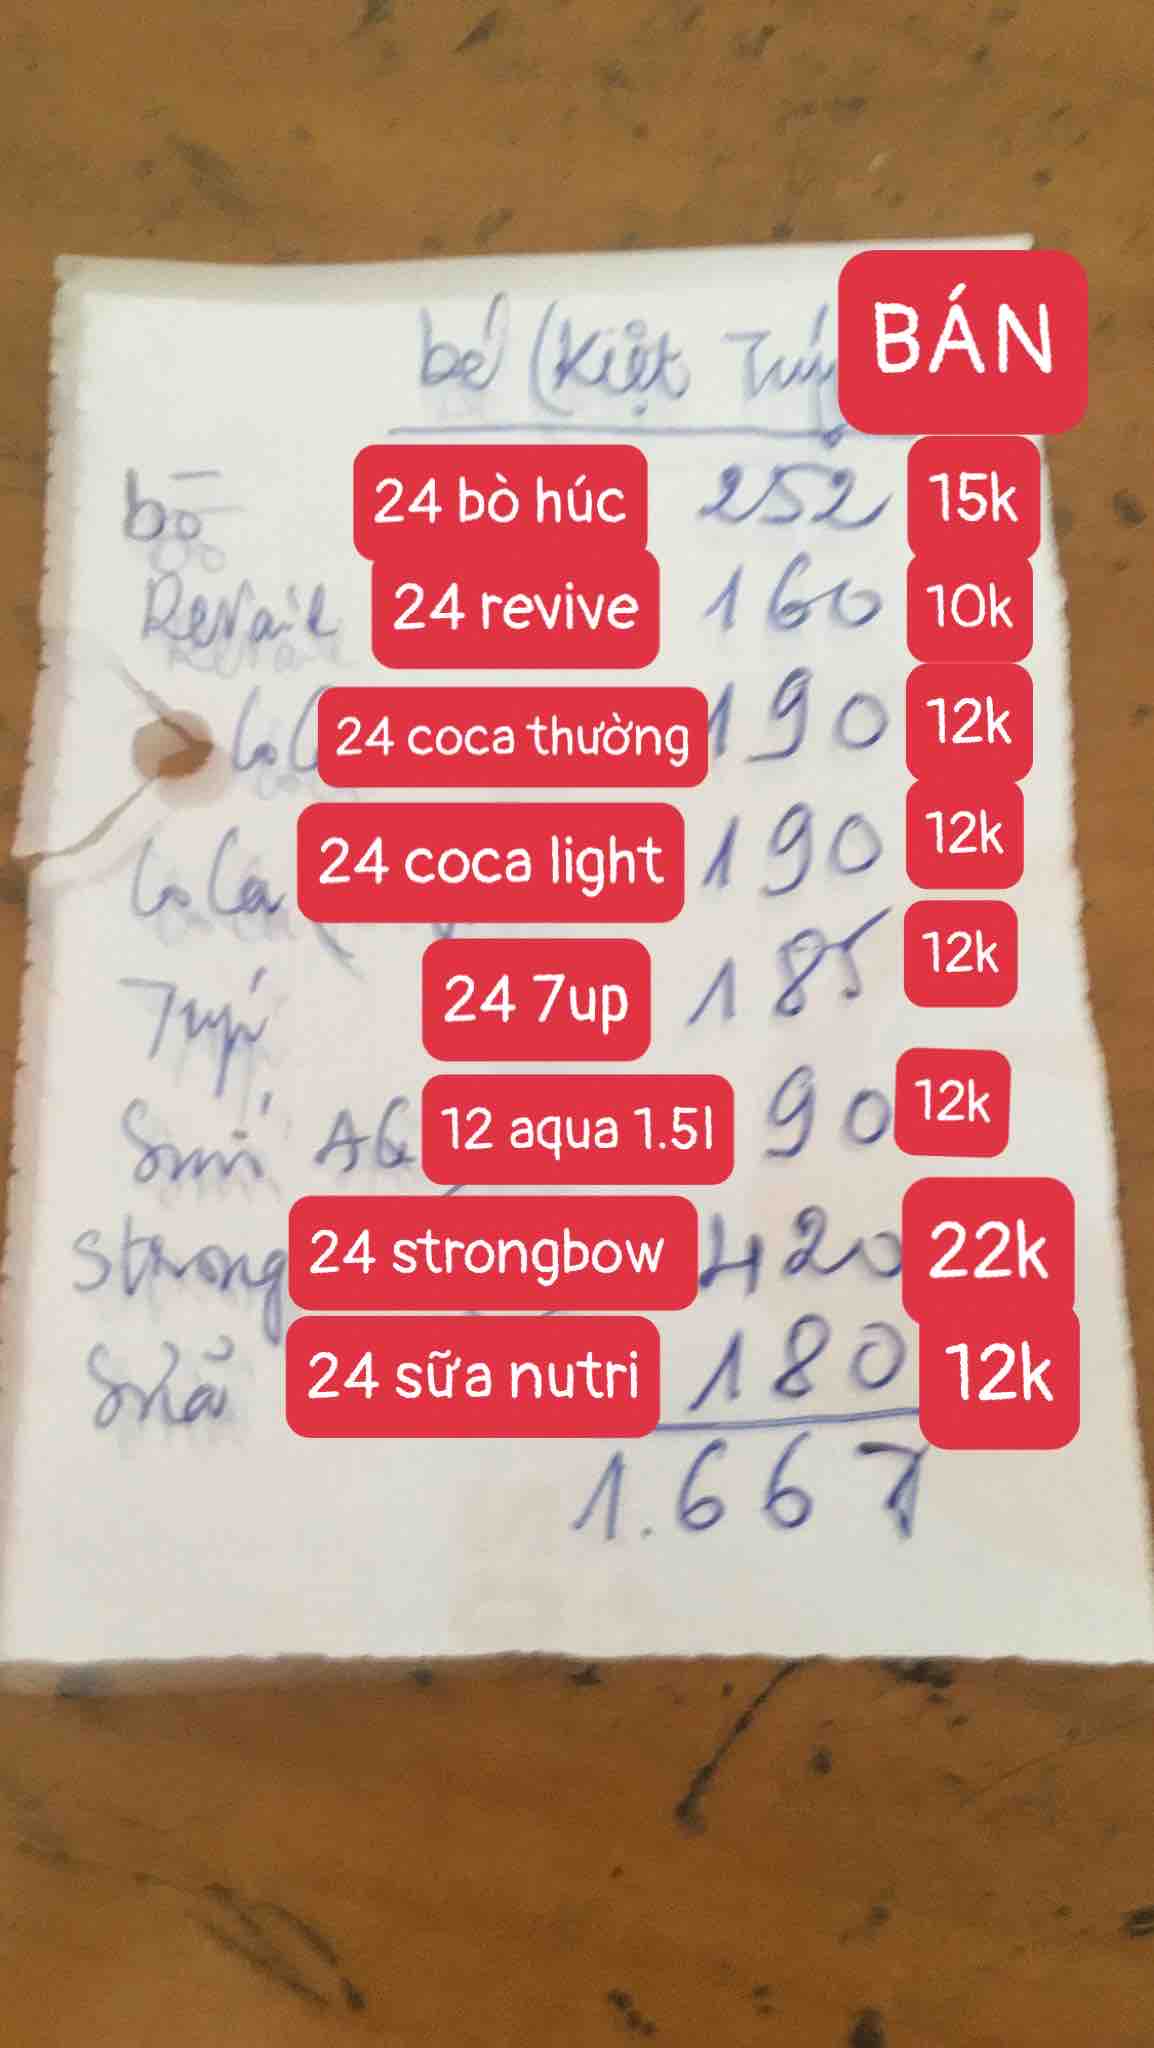 bé (Kiệt Tuý BÁN
bò 24 bò húc 252 15k
Revaile 24 revive 160 10k
Co C 24 coca thường 190 12k
Co Ca 24 coca light 190 12k
7up 24 7up 185 12k
Suối AQ 12 aqua 1.5l 90 12k
Strong 24 strongbow 420 22k
Sữa 24 sữa nutri 180 12k
1.667